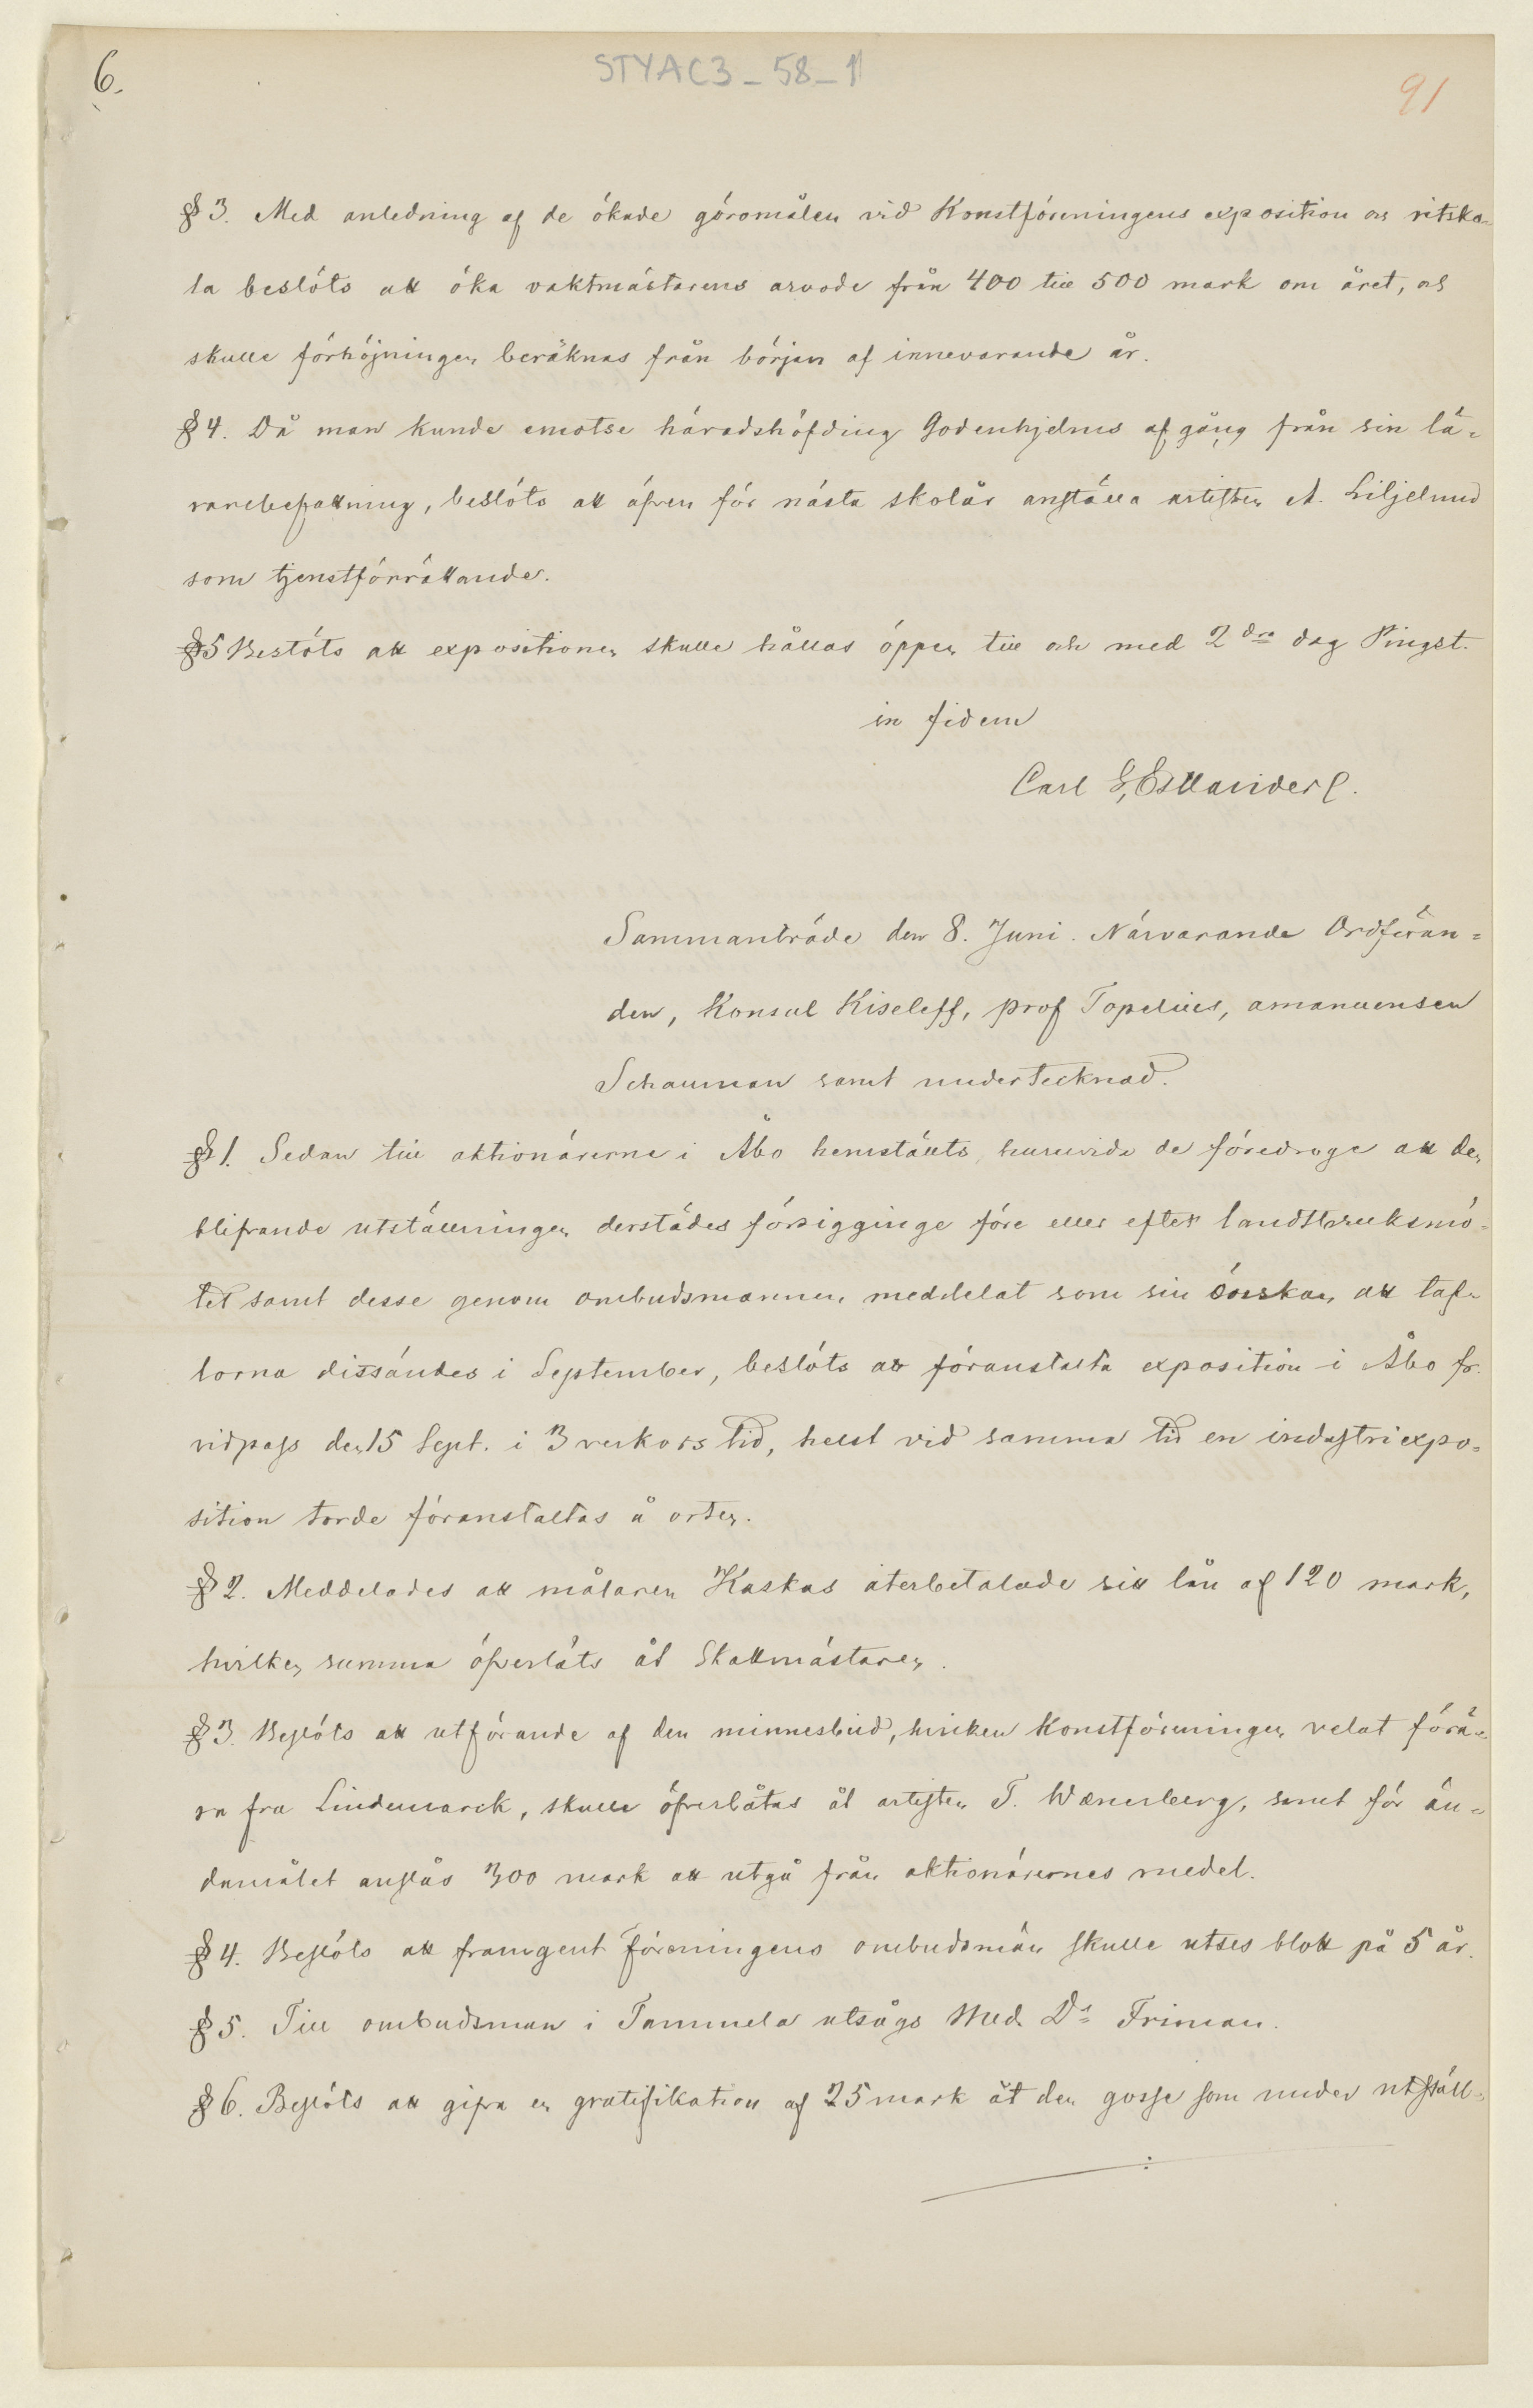 6.
STYAC3_58_1
91
§3. Med anledning af de ökade göromålen vid Konstföreningens exposition och ritsko-
la beslöts att öka vaktmästarens arvode från 400 till 500 mark om året, och
skulle förhöjningen beräknas från början af innevarande år.
§4. Då man kunde emotse häradshöfding Godenhjelms afgång från sin lä-
rarebefattning, beslöts att äfven för nästa skolår anställa artisten A. Liljelund
som tjenstförrättande.
§5 Beslöts att expositionen skulle hållas öppen till och med 2dra dag Pingst.
in fidem
Carl G. Estlander
Sammanträde den 8. Juni. Närvarande Ordföran-
den, Konsul Kiseleff, prof Topelius, amanuensen
Schauman samt undertecknad.
§1. Sedan till aktionärerne i Åbo hemstälts, huruvida de föredroge att den
blifvande utställningen derstädes försigginge före eller efter landtbruksmö-
tet samt desse genom ombudsmannen meddelat som sin önskan att taf-
lorna ditsändes i September, beslöts att föranstalta exposition i Åbo fr.
vidpass den 15 Sept. i 3 veckors tid, helst vid samma tid en industriexpo-
sition torde föranstaltas å orten.
§2. Meddelades att målaren Kaskas återbetalade sitt lån af 120 mark,
hvilken summa öfverläts åt Skattmästaren.
§3. Beslöts att utförande af den minnesbild, hvilken Konstföreningen velat förä-
ra fru Lindemarck, skulle öfverlåtas åt artisten T. Wænerberg, samt för än-
damålet anslås 300 mark att utgå från aktionärernes medel.
§4. Beslöts att framgent föreningens ombudsmän skulle utses blott på 5 år.
§5. Till ombudsman i Tammela utsågs Med. Dr Friman.
§6. Beslöts att gifva en gratifikation af 25 mark åt den gosse som under utställ-